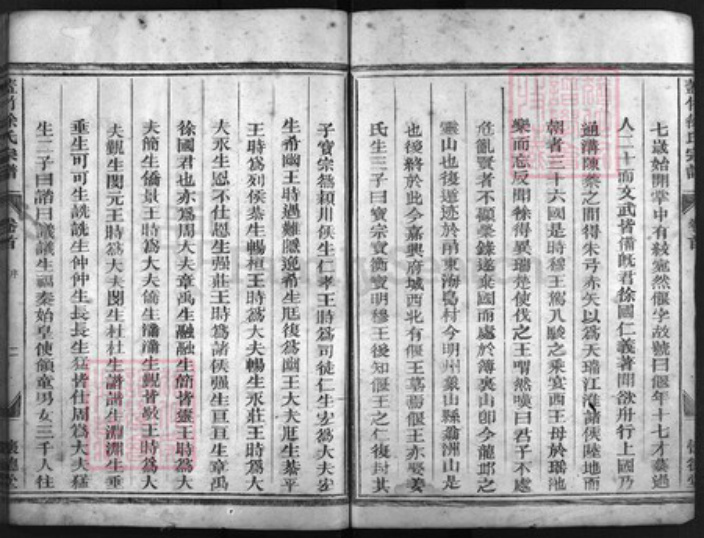 七歲始開掌中有紋宛然偃字故號曰偃年十七才藝過
人二十而文武皆備旣君徐國仁義著聞欲舟行上國乃
通溝陳蔡之間得朱弓赤矢以爲天瑞江淮諸侯陸地而
朝者三十六國是時穆王駕八駿之乘宴西王母於瑤池
樂而忘反聞徐得異瑞楚使伐之王喟然嘆曰君子不處
危亂賢者不顯榮錄遂棄國而處於 山卽今龍邱之
靈山也後遁迹於甬東海島村今明州象山縣翁洲山是
也後終於此今嘉興府城西北有偃王墓焉偃王亦娶姜
氏生三子曰寶宗寶衡寶明穆王後知偃王之仁復封其
子寶宗爲潁川侯生仁孝王時爲司徒仁生宏爲大夫宏
生希幽王時遇難 希生厖復爲幽王大夫厖生蓁平
王時爲列侯蓁生暢桓王時爲大夫暢生永莊王時爲大
夫永生恩不仕恩生强莊王時爲諸侯强生亘亘生章禹
徐國君也亦爲周大夫章禹生融融生簡皆靈王時爲大
夫簡生僑景王時爲大夫僑生瀟瀟生觀皆敬王時爲大
夫觀生閔元王時爲大夫閔生杜杜生譜譜生淵淵生垂
垂生可可生詵詵生仲仲生長長生猛皆仕周爲大夫猛
生二子曰諧曰議議生福秦始皇使領童男女三千人往
徐氏宗譜
卷首
二